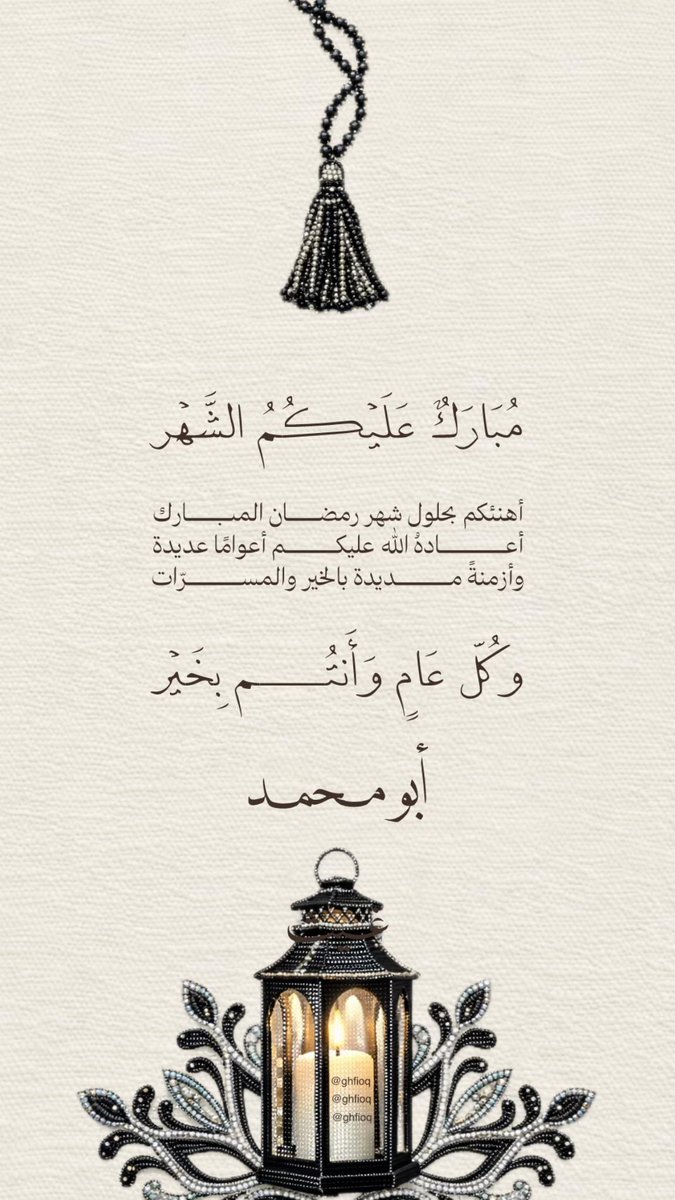 مُبَارَكٌ عَلَيْكُمُ الشَّهْر
أهنئكم بحلول شهر رمضان المبارك
أعادهُ الله عليكم أعوامًا عديدة
وأزمنةً مديدة بالخير والمسرّات
وكُلّ عَامٍ وَأَنتُم بِخَيْر
أبو محمد
@ghfioq
@ghfioq
@ghfioq